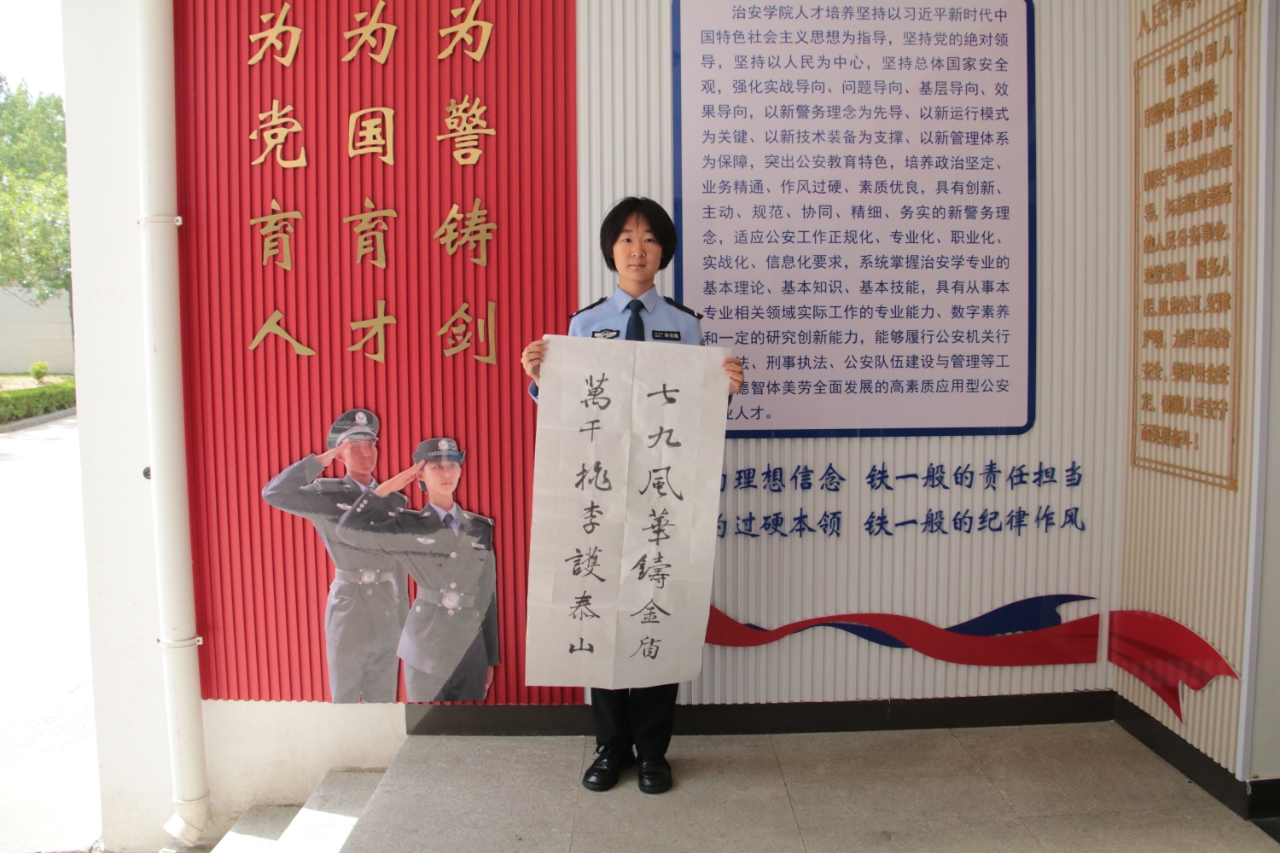 为党育人
为国育才
为警铸剑
治安学院人才培养坚持以习近平新时代中
国特色社会主义思想为指导，坚持党的绝对领
导，坚持以人民为中心，坚持总体国家安全
观，强化实战导向、问题导向、基层导向、效
果导向，以新警务理念为先导、以新运行模式
为关键、以新技术装备为支撑、以新管理体系
为保障，突出公安教育特色，培养政治坚定、
业务精通、作风过硬、素质优良，具有创新、
主动、规范、协同、精细、务实的新警务理
念，适应公安工作正规化、专业化、职业化、
实战化、信息化要求，系统掌握治安学专业的
基本理论、基本知识、基本技能，具有从事本
专业相关领域实际工作的专业能力、数字素养
和一定的研究创新能力，能够履行公安机关行
法、刑事执法、公安队伍建设与管理等工
德智体美劳全面发展的高素质应用型公安
业人才。
七九風華鑄金盾
萬千桃李護泰山
的理想信念 铁一般的责任担当
的过硬本领 铁一般的纪律作风
人民警察
我是中国人